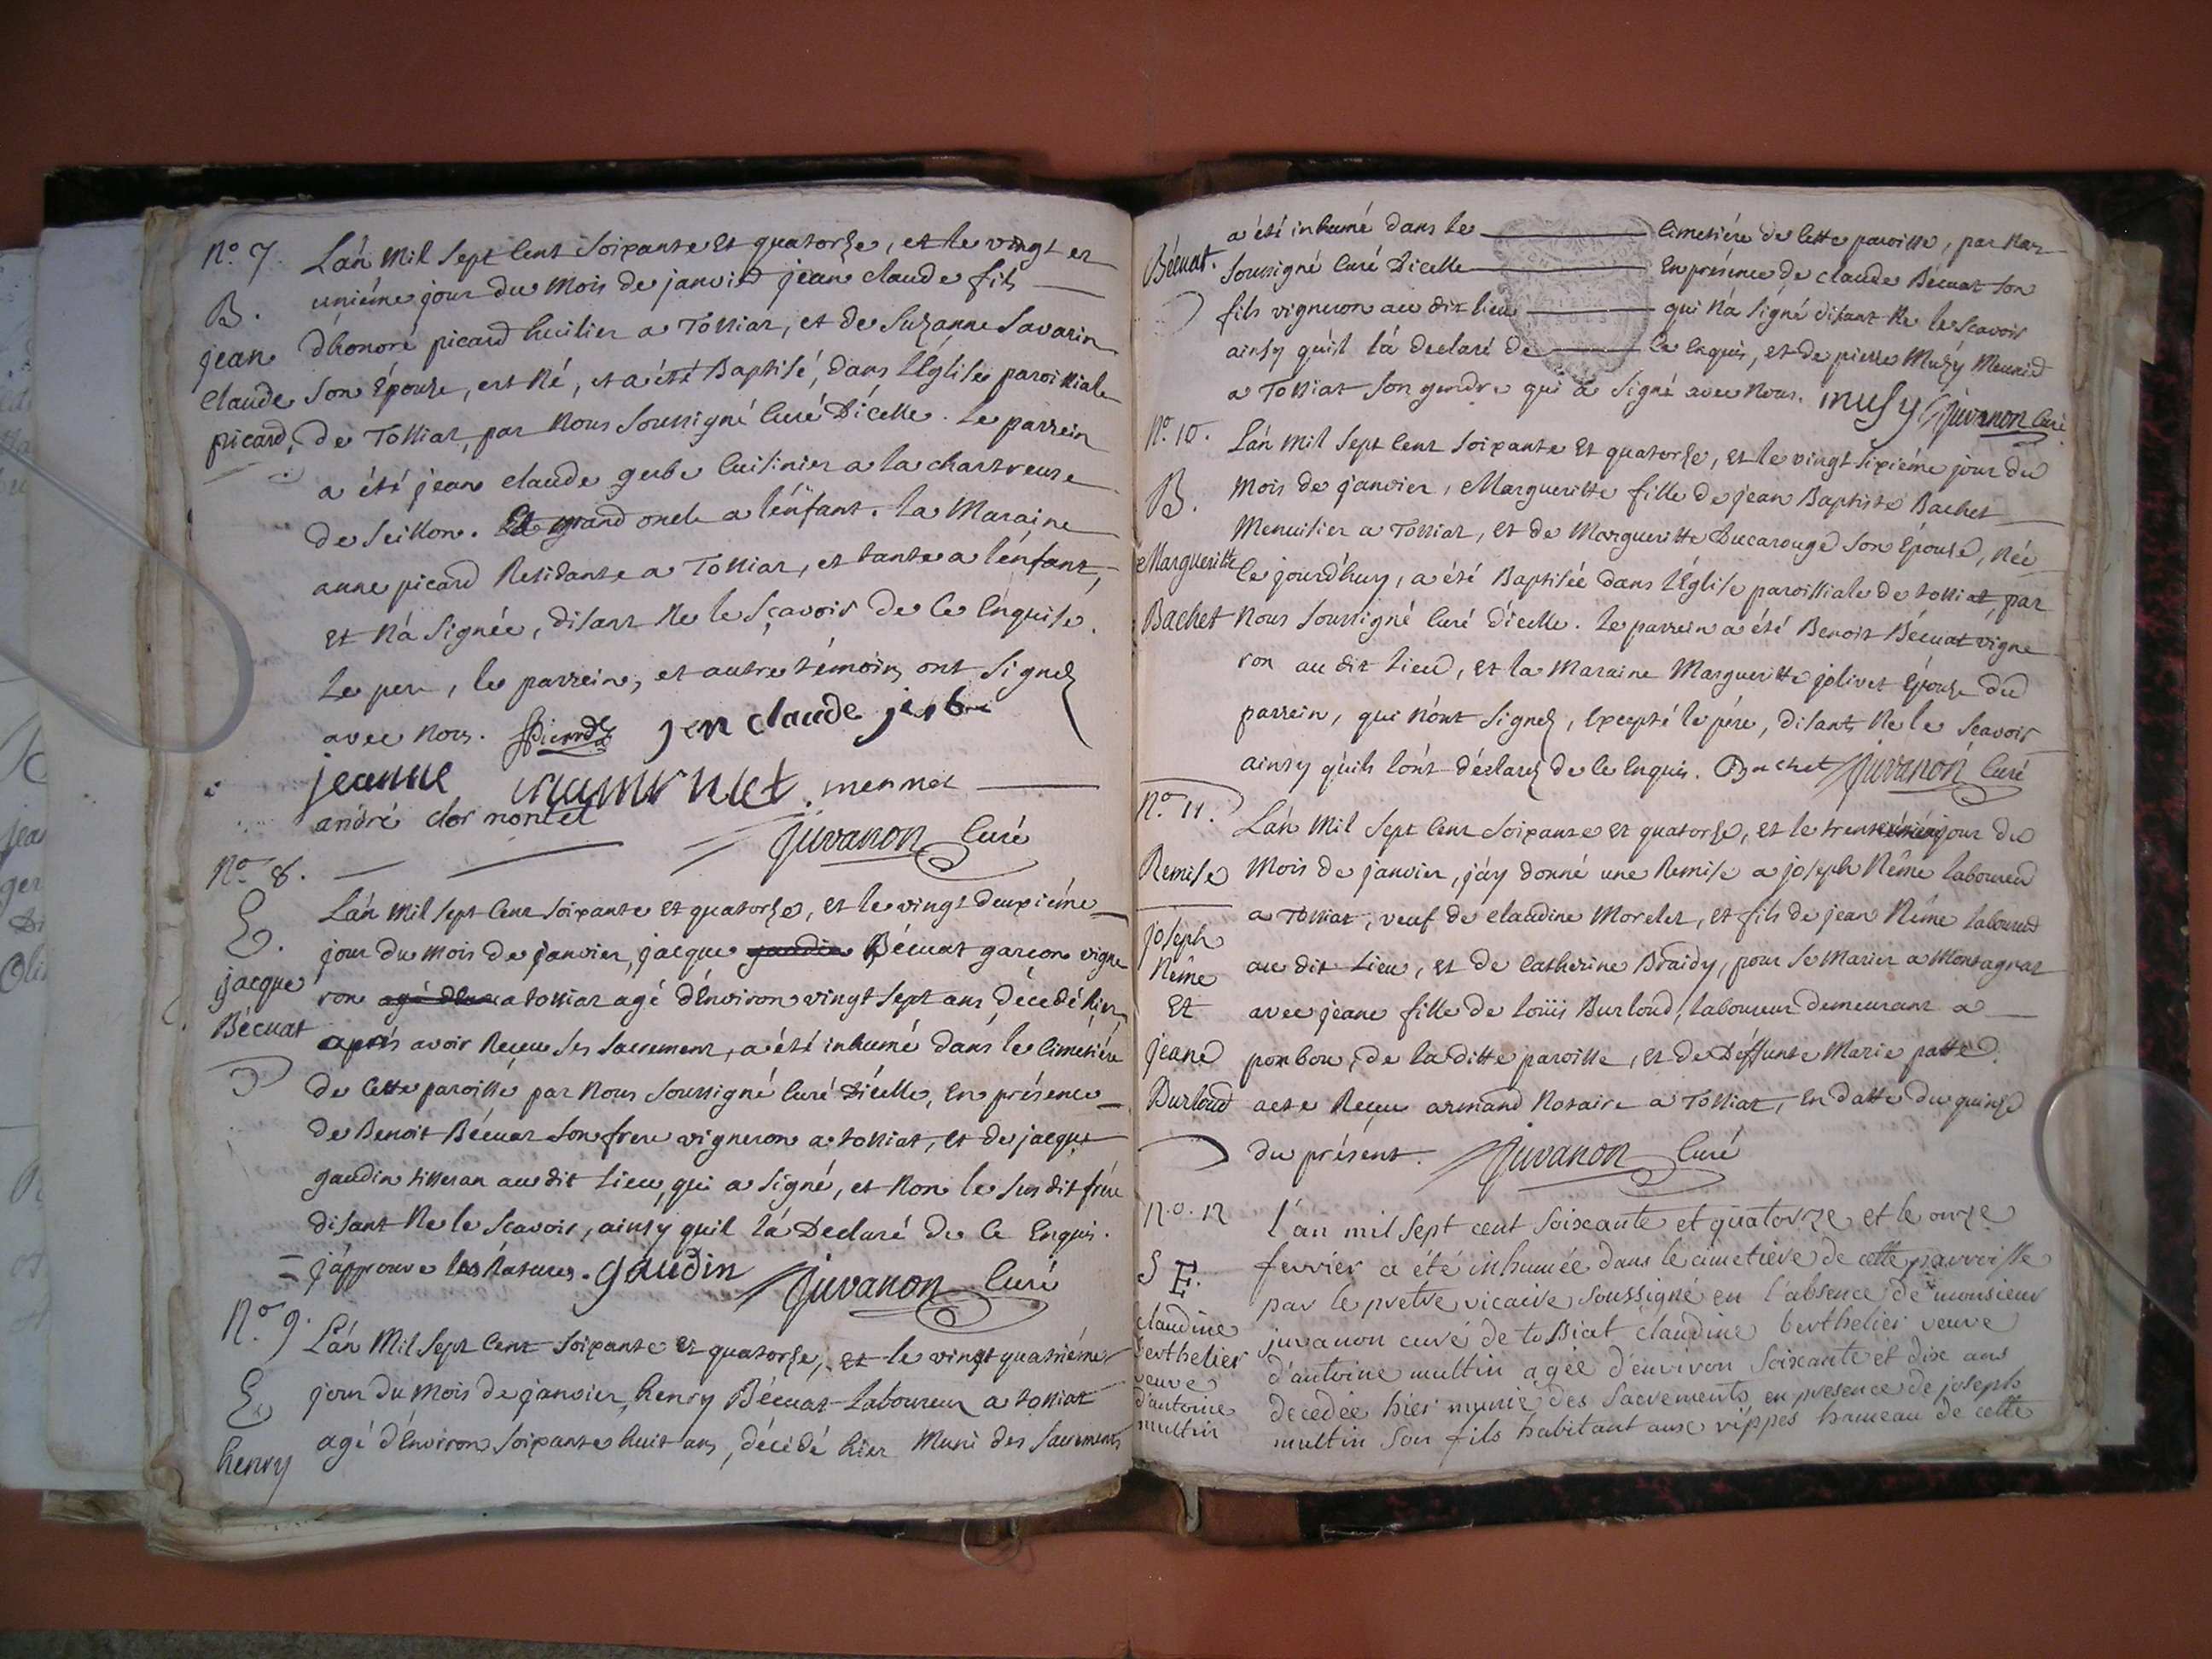 N.o 7. Lán Mil Sept Cent Soixante Et quatorze, et le vingt et
B. uniéme jour du Mois de janvier jean claude fils
jean d'honoré picard huilier a Tossiat, et de Suzanne Savarin
Claude Son Épouze, est Né, et a été Baptisé, dans L'Église paroissiale
picard, de Tossiat, par Nous Soussigné Curé D'icelle. Le parrein
a été jean claude gerbe Cuisinier a la chartreuse
de Seillon. Et grand oncle a l'énfant. la Maraine
anne picard Residante a Tossiat, et tante a l'énfant,
Et Ná Signée, disant Ne le Sçavoir de Ce Enquise.
Le pere, le parrein, et autre témoins ont Signez
avec Nous. jen claude jerbe
jeanne mermet
andré dormontet
Juvanon Curé
N.o 8.
Lán mil Sept Cent Soixante Et quatorze, et le vingt deuxiéme
E. jour du mois de janvier, jacque gaudin Bécuat garcon vigne
jacque ron agé a tossiat agé d'Environ vingt Sept ans, décedé hier,
Bécuat aprés avoir Reçeu Ses Sacrement, a été inhumé dans le Cimetiére
de Cette paroisse par Nous Soussigné Curé D'icelle, En présence
de Benoit Bécuat Son frere vigneron a tossiat, et de jacque
gaudin tisseran au dit Lieu, qui a Signé, et Non le Sus dit frére
disant Ne le Scavoir, ainsy quil l'á Declaré de Ce Enquis.
= j'approuve les Ratures. gaudin Juvanon Curé
N.o 9. Lán Mil Sept Cent Soixante Et quatorze, et le vingt quatriéme
E jour du Mois de janvier, henry Bécuat Laboureur a tossiat
henry agé d'Environ Soixante huit ans, décédé hier Muni des Sacremens
a été inhumé dans le Cimetiére de Cette paroisse, par Nous
Bécuat. Soussigné Curé D'icelle En présence de Claude Bécuat Son
fils vigneron au dit lieu qui Ná Signé disant Ne le Scavoir
ainsy quil l'á declaré de Ce Enquis, et de pierre Musy Meunier
a Tossiat Son gendre qui a Signé avec Nous. musy Juvanon Curé
N.o 10. Lán mil Sept Cent Soixante Et quatorze, Et le vingt Sixiéme jour du
B. Mois de janvier, Margueritte fille de jean Baptiste Bachet
Menuisier a Tossiat, Et de Margueritte Ducarouge Son Épouse, Née
Margueritte Ce jourd'huy, a été Baptisée dans L'Église paroissiale de tossiat, par
Bachet Nous Soussigné Curé d'icelle. Le parrein a été Benoit Bécuat vigne
ron au dit Lieu, Et la Maraine Margueritte jolivet Épouze du
parrein, qui N'ont Signez, Excepté le pére, disants Ne le Scavoir
ainsy quils l'ont déclarez de Ce Enquis. Bachet Juvanon Curé
N.o 11. Lán Mil Sept Cent Soixante et quatorze, et le jour du
Remise Mois de janvier, j'áy donné une Remise a joseph Néme Laboureur
a Tossiat, veuf de claudine Morelet, et fils de jean Néme Laboureur
joseph au dit Lieu, et de Catherine Braidy, pour Se Marier a Montagnat
Néme
Et avec jeane fille de Loüis Burloud, Laboureur demeurant a
jeane ponbou, de la ditte paroisse, et de Déffunte Marie patte.
Burloud acte Reçeu armand Notaire a Tossiat, En datte du quinze
du présent. Juvanon Curé
N.o. 12 l'an mil sept cent soixante et quatorze et le onze
S E. fevrier a été inhumée dans le cimetiere de cette parroisse
par le pretre vicaire soussigné en l'absence de monsieur
claudine juvanon curé de tossiat claudine berthelier veuve
berthelier d'antoine multin agée d'environ soixante et dix ans
veuve
d'antoine decedée hier munie des sacrements, en presence de joseph
multin multin son fils habitant aux vippes hameau de cette